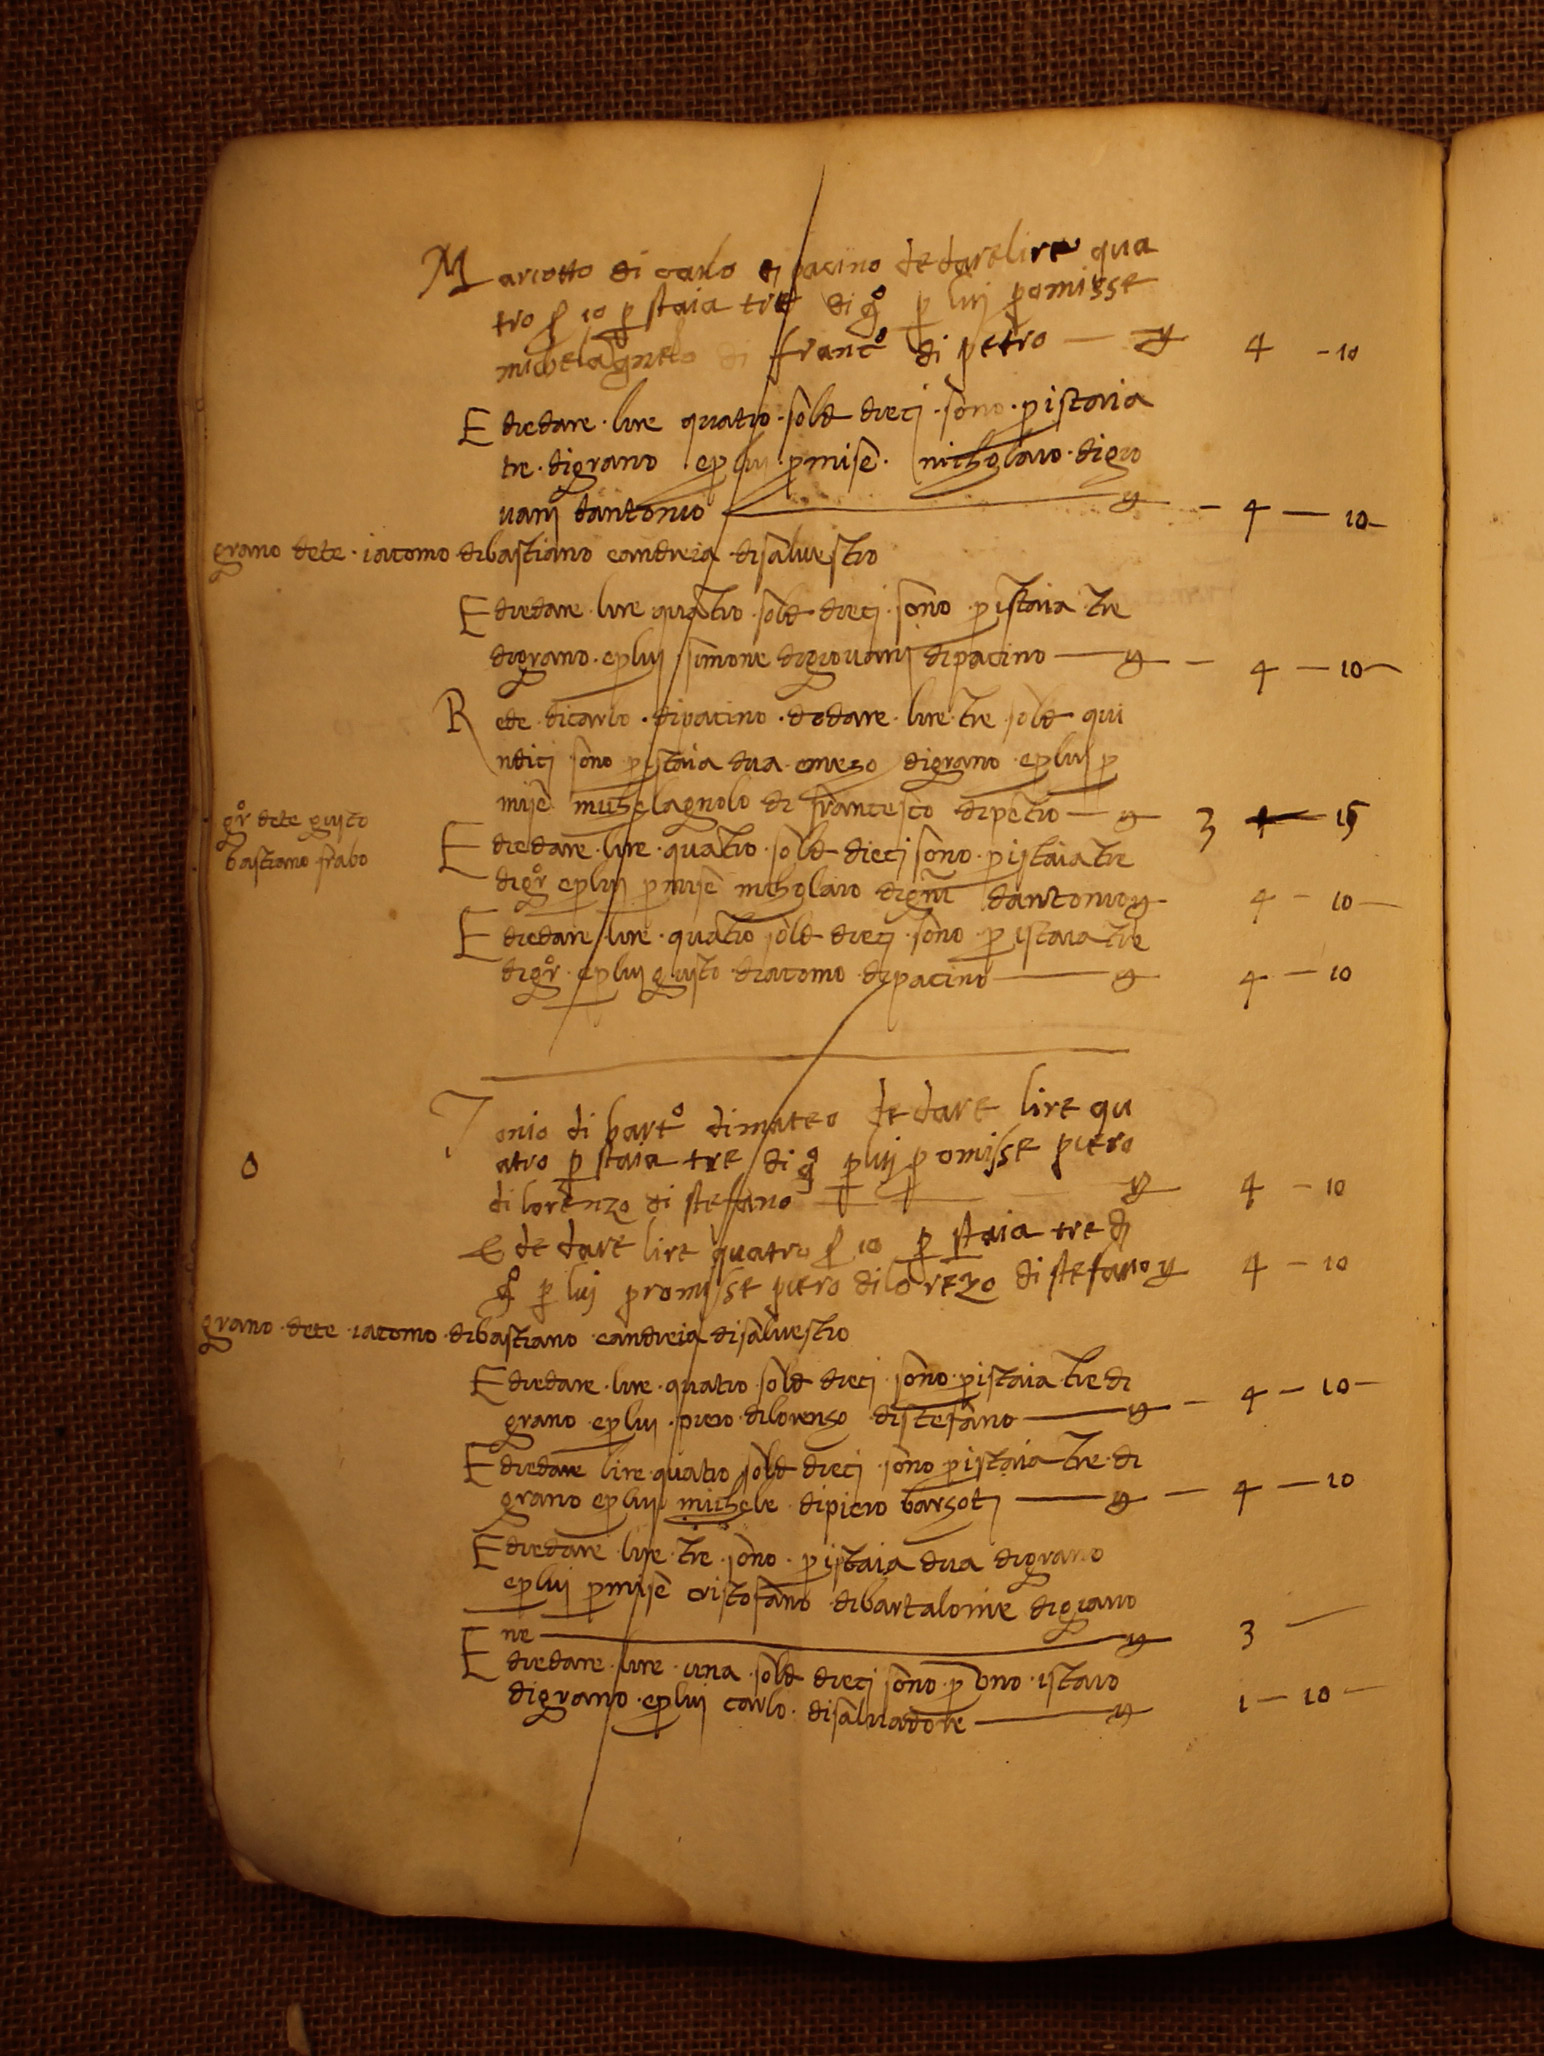 Mariotto di carlo di pacino de dare lire qua
tro s 10 p staia tre di gº p lui pomisse
michelagnelo di francº di petro — ỻ 4 - 10
E diedare · lire quatro · sold dieci · sono · p istaia
tre · digrano eplui pmise · nicholaio · digio
vanj dantonio — ỻ - 4 — 10
grano dete · iacomo dibastiano eandreia · disalvestro
E diedare · lire quatro · sold dieci · sono · p istaia · tre
digrano · eplui simone digiovanj dipacino — ỻ - 4 — 10
Rede · dicarlo · dipacino · dedare · lire · tre sold qui
ndici sono p istaia dua emezo digrano · eplui p
mise michelagnolo di francesco dipetro — ỻ 3 — 15
gr dete giusto
bastiano frabo
E diedare · lire · quatro · sold dieci sono · p istaia tre
digr eplui pmise nicholaio digni dantonio ỻ 4 - 10
E diedare lire · quatro sold dieci · sono · p istaia tre
digr · eplui giusto diacomo · dipacino — ỻ 4 — 10
Tonio di bartº dimateo de dare lire qu
atro p staia tre di gº plui promisse piero
di lorenzo di stefano — ỻ 4 - 10
o
E de dare lire quatro s 10 p staia tre di
gº p lui promisse piero di lorezo di stefano ỻ 4 - 10
grano · dete · iacomo · dibastiano · eandreia disalvestro
E diedare · lire · quatro · sold dieci · sono · p istaia · tre di
grano · eplui · piero · dilorenzo distefano — ỻ - 4 — 10
E diedare lire · quatro sold dieci · sono p istaia tre · di
grano eplui michele · dipiero barsotj — ỻ — 4 — 10
E diedare · lire · tre · sono · p istaia dua digrano
eplui pmise cristofano dibartalome digiano
ne — ỻ 3 —
E diedare · lire · una · sold dieci sono · p uno · istaio
digrano · eplui carlo · disalvadore — ỻ 1 — 10